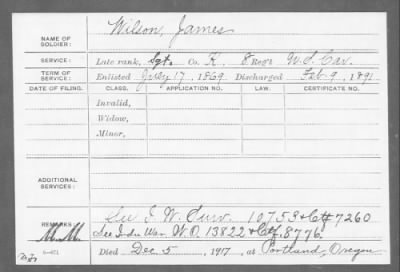 NAME OF SOLDIER: Wilson, James
SERVICE: Late rank, Sgt. Co. K, 8 Reg't U.S. Cav.
TERM OF SERVICE: Enlisted July 17, 1869, Discharged Feb. 9, 1891
DATE OF FILING. CLASS. APPLICATION NO. LAW. CERTIFICATE NO.
Invalid,
Widow,
Minor,
ADDITIONAL SERVICES:
REMARKS: See I. W. Surv. 10753 & Ctf 7260
M.M. See Indn War. W.O. 13822 & Ctf. 8776.
Died Dec. 5, 1917, at Portland, Oregon